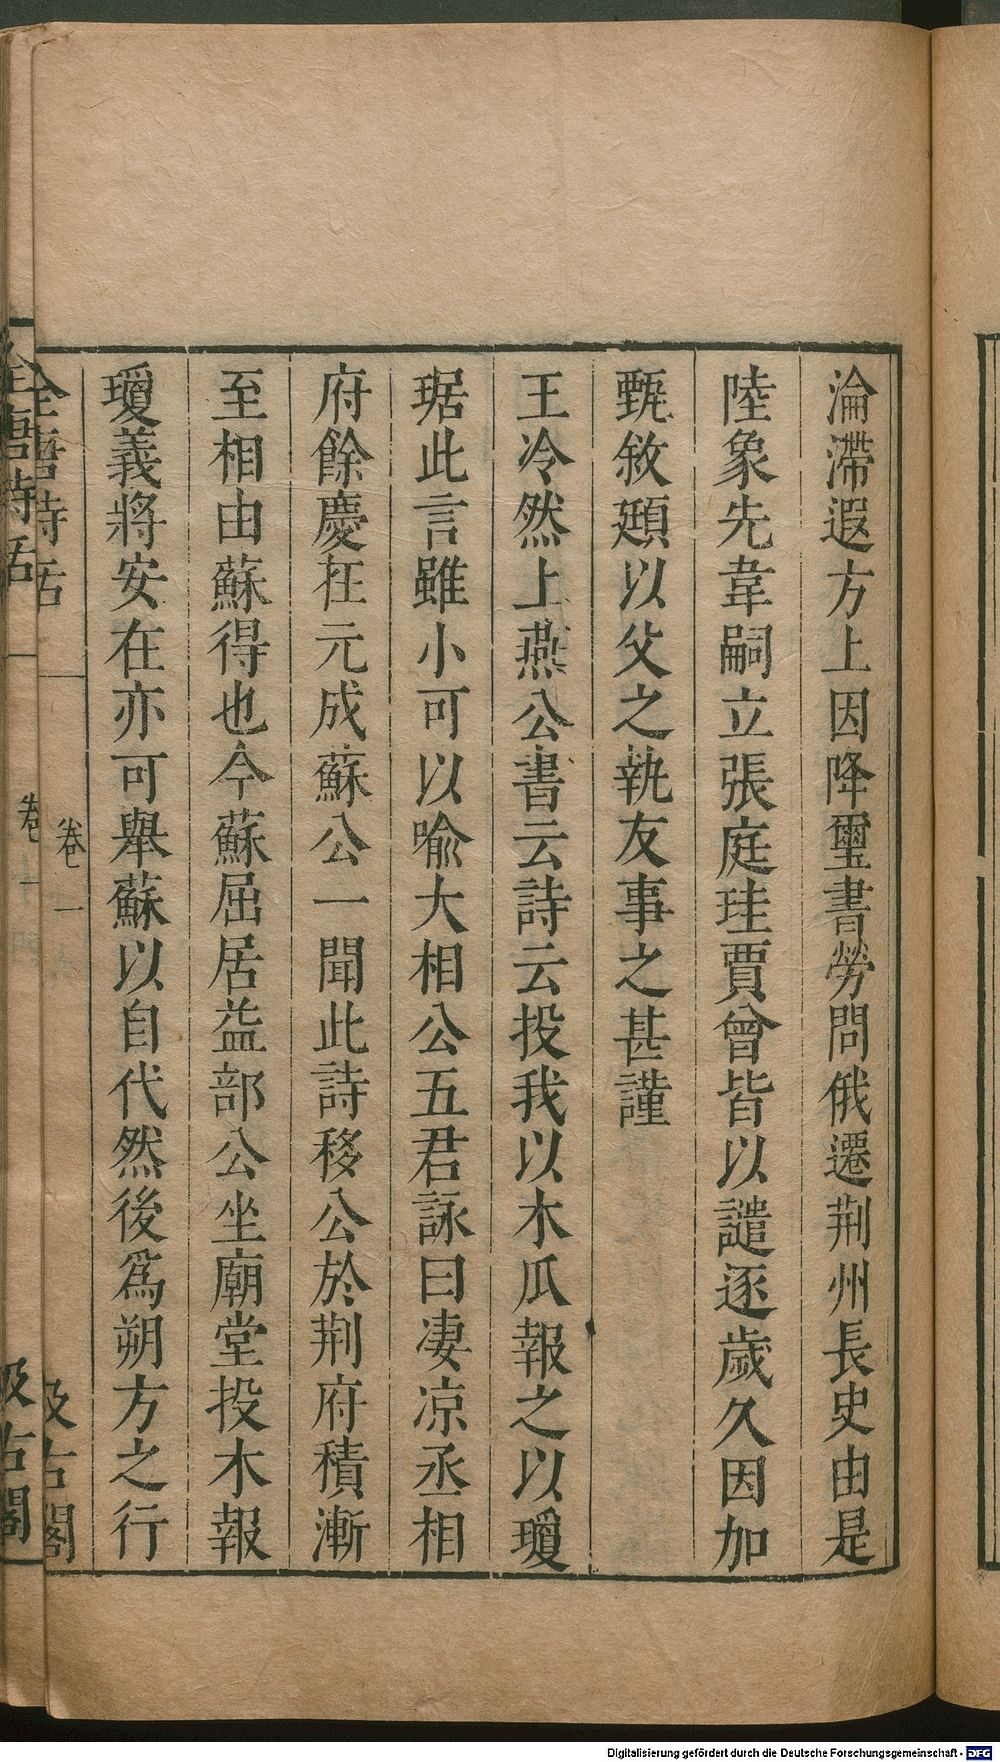 淪滯遐方上因降璽書勞問俄遷荆州長史由是
陸象先韋嗣立張庭珪賈曾皆以譴逐歲久因加
甄敘頲以父之執友事之甚謹
王泠然上燕公書云詩云投我以木瓜報之以瓊
琚此言雖小可以喻大相公五君詠曰凄凉丞相
府餘慶在元成蘇公一聞此詩移公於荆府積漸
至相由蘇得也今蘇屈居益部公坐廟堂投木報
瓊義將安在亦可舉蘇以自代然後爲朔方之行
全唐詩話
卷一
汲古閣
全唐詩話
卷一
汲古閣
Digitalisierung gefördert durch die Deutsche Forschungsgemeinschaft - DFG